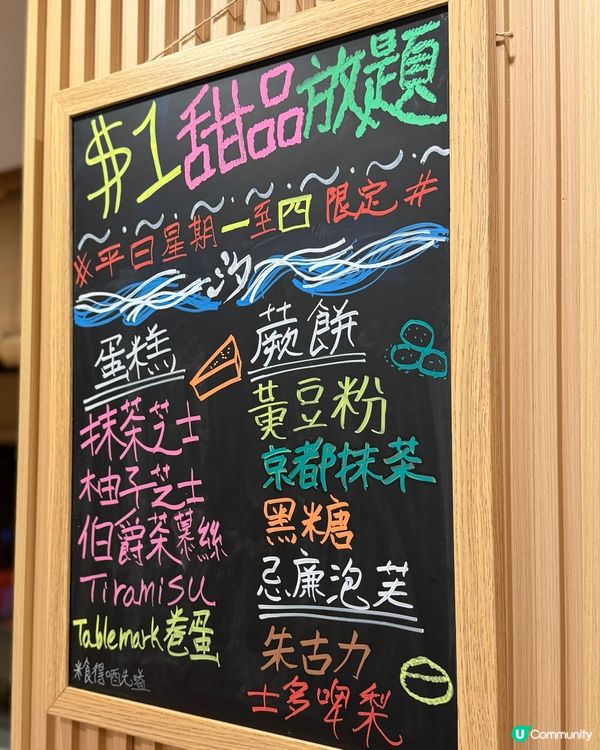 $1甜品放題
※平日星期一至四限定#
汐
蛋糕
抹茶芝士
柚子芝士
伯爵茶慕絲
Tiramisu
Tablemark卷蛋
米食得唔先嗌
蕨餅
黃豆粉
京都抹茶
黑糖
忌廉泡芙
朱古力
士多啤梨
U Community